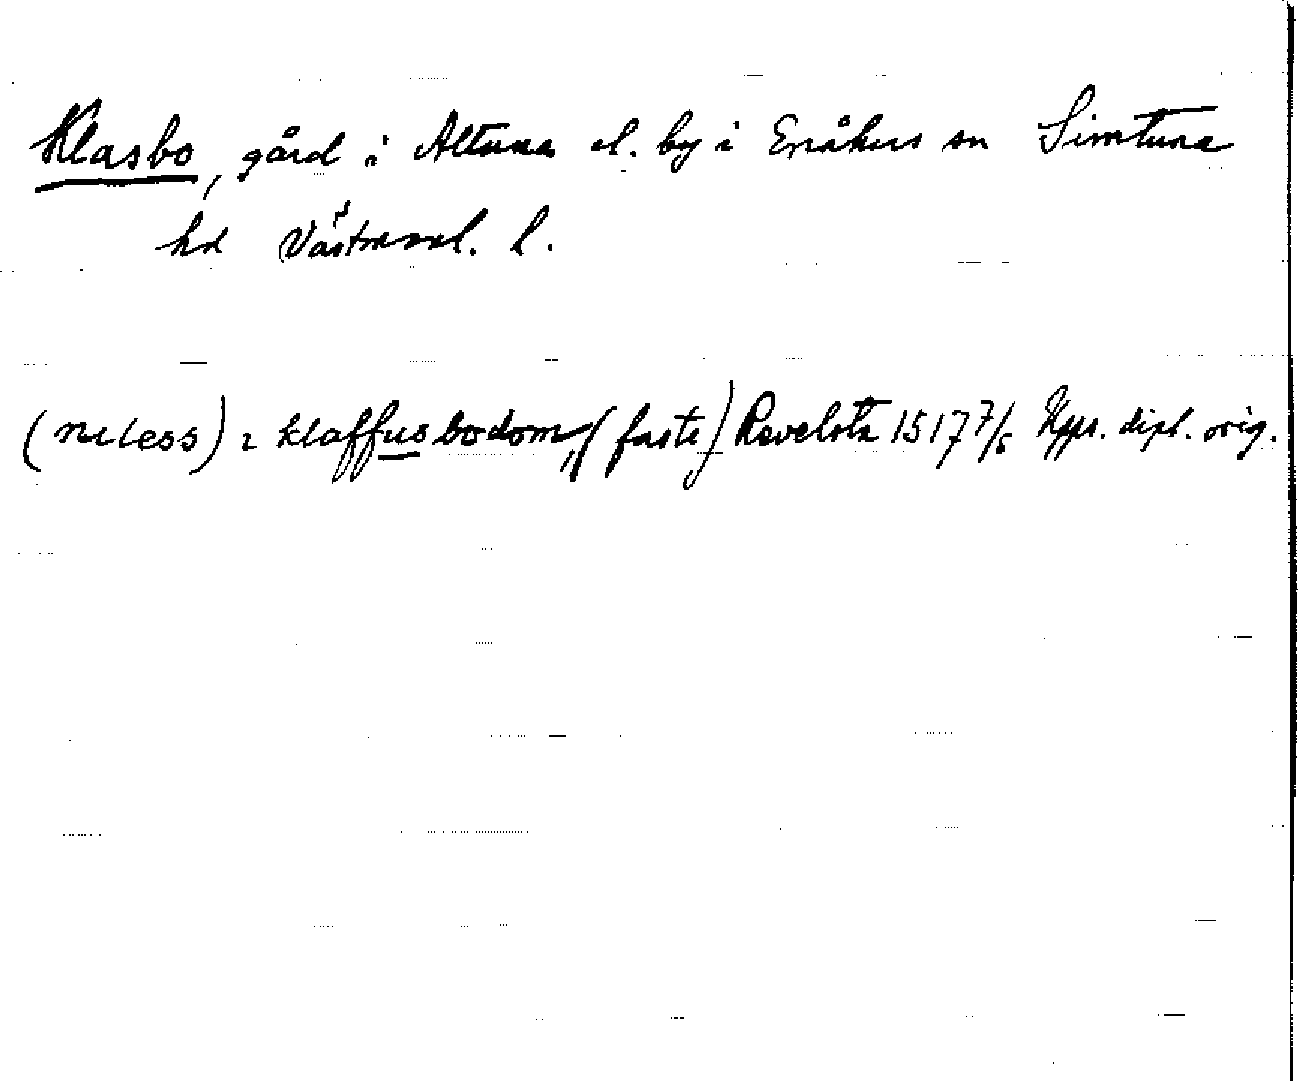 Klasbo, gård i Altuna el. by i Enåkers sn Simtuna
hd Västmanl. l.
(niless) i klaffus bodom, (faste) Revelsta 1517 7/6 Upps. dipl. orig.